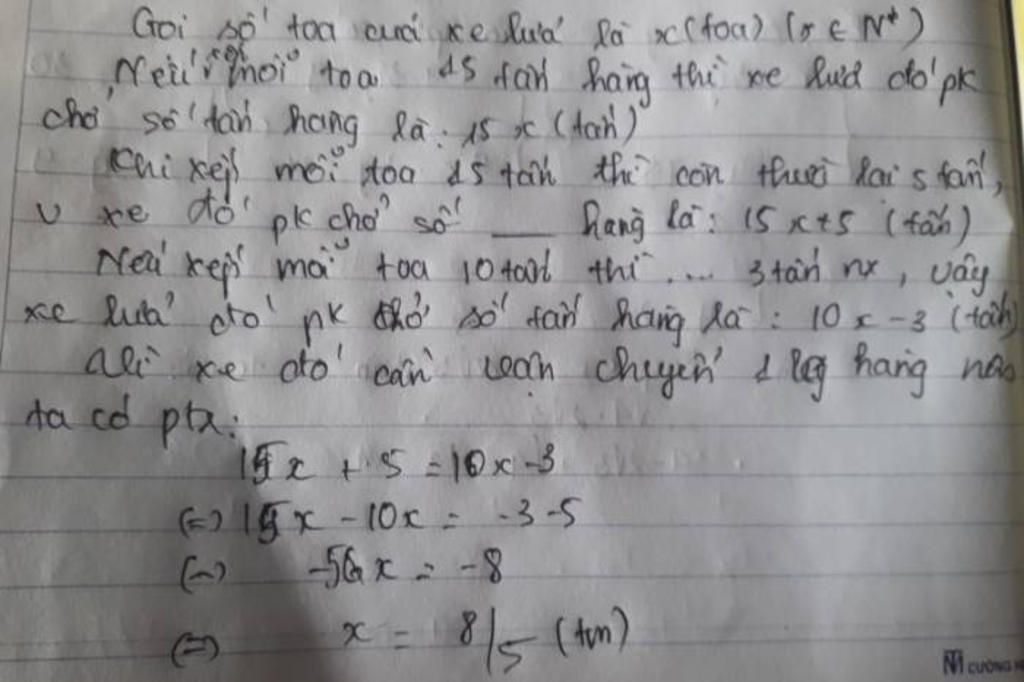 Gọi số toa của xe lửa là x (toa) (x ∈ N*)
Nếu mỗi toa 15 tấn hàng thì xe lửa đó pk
chở số tấn hàng là: 15 x (tấn)
Khi xếp mỗi toa 15 tấn thì còn thừa lại 5 tấn,
v xe đó pk chở số __ hàng là: 15 x + 5 (tấn)
Nếu xếp mỗi toa 10 tấn thì ... 3 tấn nx, vậy
xe lửa đó pk chở số tấn hàng là: 10 x - 3 (tấn)
xe đó cần chuyển 1 lg hàng nào
ta có ptr:
15x + 5 = 10x - 3
(=) 15x - 10x = -3 - 5
x = -8
(=) x = 8/5
CUONG